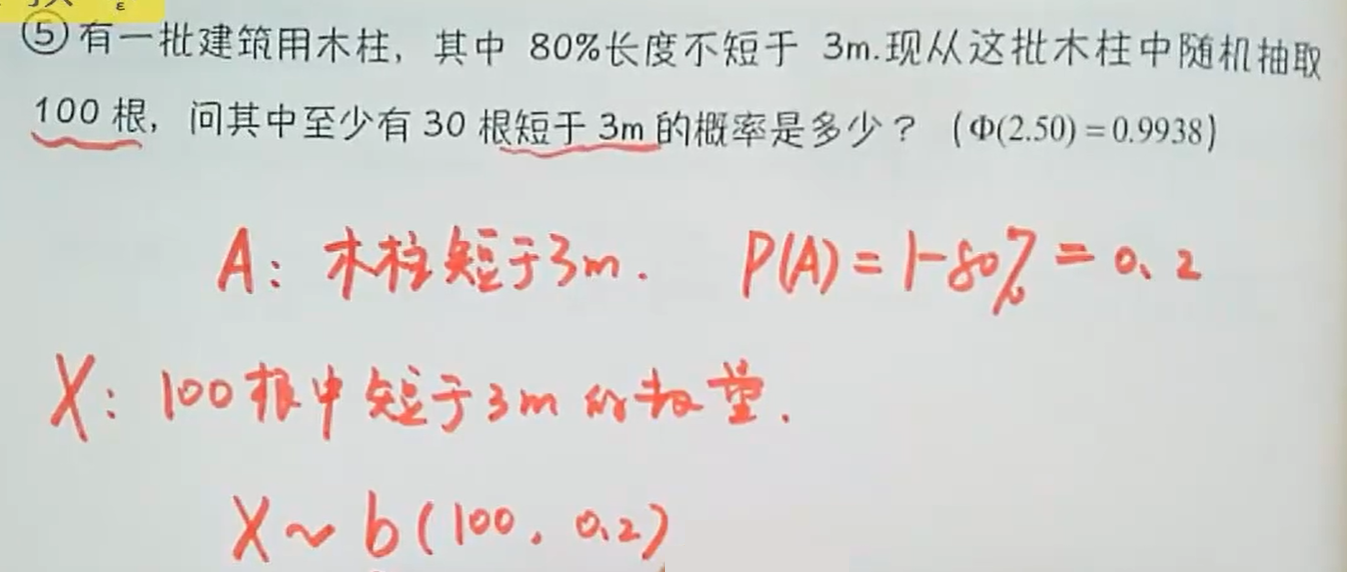 ε
⑤有一批建筑用木柱，其中 80%长度不短于 3m.现从这批木柱中随机抽取
100 根，问其中至少有 30 根短于 3m 的概率是多少？ (Φ(2.50) = 0.9938)
A: 木柱短于3m. P(A) = 1-80% = 0.2
X: 100根中短于3m的数量.
X ~ b(100, 0.2)